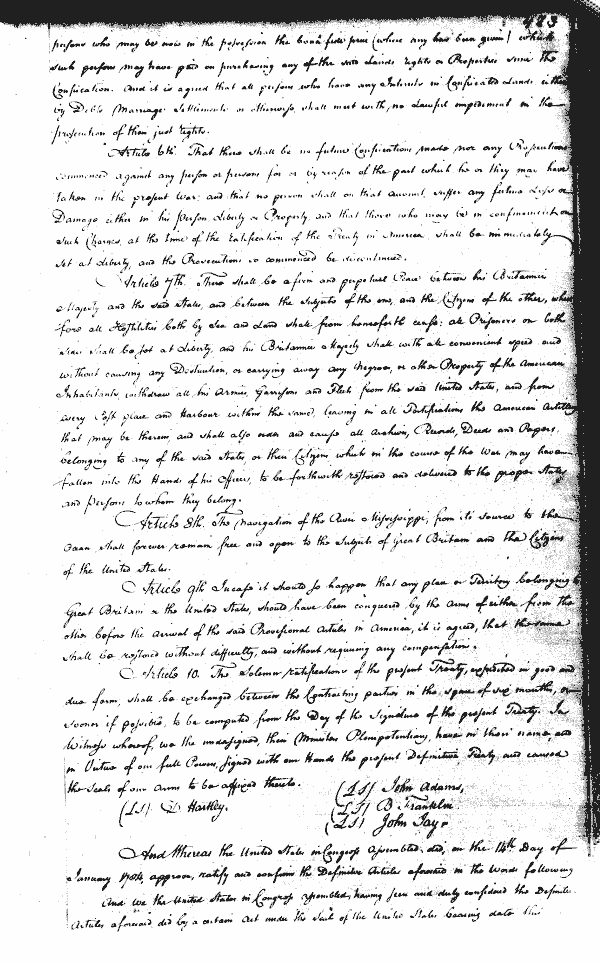 483
persons who may be now in the possession the bona fide price (where any has been given) which
such persons may have paid on purchasing any of the said Lands rights or Properties since the
Confiscation. And it is agreed that all persons who have any Interests in Confiscated Lands either
by Debts Marriage Settlements or otherwise, shall meet with no Lawful impediment in the
prosecution of their just rights.
Article 6th. That there shall be no future Confiscations made nor any Prosecutions
commenced against any person or persons for or by reason of the part which he or they may have
taken in the present War: and that no person shall on that account, suffer any future Loss or
Damage either in his Person Liberty or Property, and that those who may be in confinement on
such Charges, at the time of the ratification of the Treaty in America, shall be immediately
set at Liberty, and the Prosecutions so commenced be discontinued.
Article 7th. There shall be a firm and perpetual Peace between his Britannic
Majesty and the said States, and between the Subjects of the one, and the Citizens of the other, where
fore all Hostilities both by Sea and Land shall from henceforth cease: all Prisoners on both
sides shall be set at Liberty, and his Britannic Majesty shall with all convenient speed and
without causing any Destruction, or carrying away any Negroes, or other Property of the American
Inhabitants, withdraw all his Armies, Garrisons and Fleets from the said United States, and from
every Post place and Harbour within the same, leaving in all Fortifications the American Artillery
that may be therein, and shall also order and cause all Archives, Records, Deeds and Papers,
belonging to any of the said States, or their Citizens which in the course of the War may have
fallen into the Hands of his Officers, to be forthwith restored and delivered to the proper States
and Persons to whom they belong.
Article 8th. The navigation of the River Mississippi, from its source to the
Ocean shall forever remain free and open to the Subjects of Great Britain and the Citizens
of the United States.
Article 9th. In case it should so happen that any place or Territory belonging to
Great Britain or the United States, should have been conquered by the Arms of either from the
other before the arrival of the said Provisional Articles in America, it is agreed, that the same
shall be restored without difficulty, and without requiring any compensation.
Article 10. The Solemn ratifications of the present Treaty, expedited in good and
due form, shall be exchanged between the Contracting parties in the space of six months, or
sooner if possible, to be computed from the Day of the Signature of the present Treaty. In
Witness whereof, we the undersigned, their Ministers Plenipotentiary, have in their name, and
in Virtue of our full Powers, signed with our Hands the present Definitive Treaty, and caused
the Seals of our Arms to be affixed thereto.
(LS) John Adams,
(LS) D Hartley.
(LS) B Franklin
(LS) John Jay.
And Whereas the United States in Congress Assembled, did, on the 14th Day of
January 1784, approve, ratify and confirm the Definitive Articles aforesaid in the Words following
And we the United States in Congress Assembled, having seen and duly considered the Definitive
Articles aforesaid did by a certain Act under the Seal of the United States bearing date this